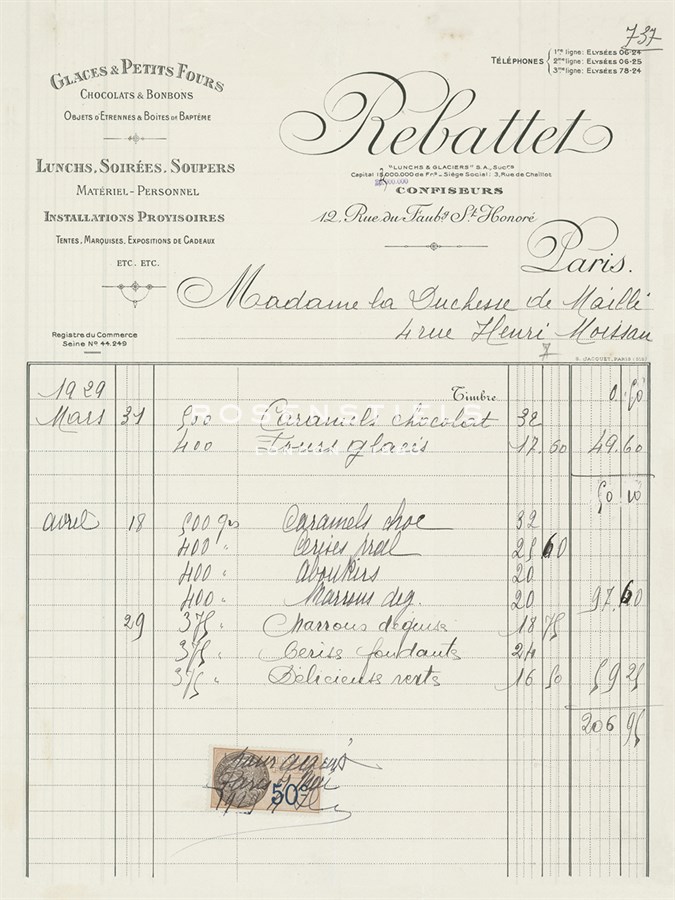 737
GLACES & PETITS FOURS
CHOCOLATS & BONBONS
OBJETS D'ETRENNES & BOÎTES DE BAPTÊME
LUNCHS, SOIRÉES, SOUPERS
MATÉRIEL - PERSONNEL
INSTALLATIONS PROVISOIRES
TENTES, MARQUISES, EXPOSITIONS DE CADEAUX
ETC. ETC.
Registre du Commerce
Seine Nº 44.249
TÉLÉPHONES
1ère ligne: ELYSÉES 06-24
2ème ligne: ELYSÉES 06-25
3ème ligne: ELYSÉES 78-24
Rebattet
"LUNCHS & GLACIERS" S.A., Succrs
Capital 000.000 de Frs - Siège Social: 3, Rue de Chaillot
CONFISEURS
12, Rue du Faubg St Honoré
Paris.
Madame la Duchesse de Maillé
4 rue Henri Moissan
7
S. JACQUET, PARIS
1929 Timbre 0 50
Mars 31 500 Caramels chocolat 32
400 Fruits glacés 17.60 49.60
50 10
avril 18 500 grs Caramels choc 32
400 " Cerises pral 25 60
400 " aboukirs 20
400 " Marrons dég. 20 97.60
29 375 " Marrons déguisés 18 75
375 " Cerise fondante 24
375 " Délicieuse verte 16 50 59 25
206 95
ROSENSTIELS
pour acquit
Paris 7 Mai
1929
50c